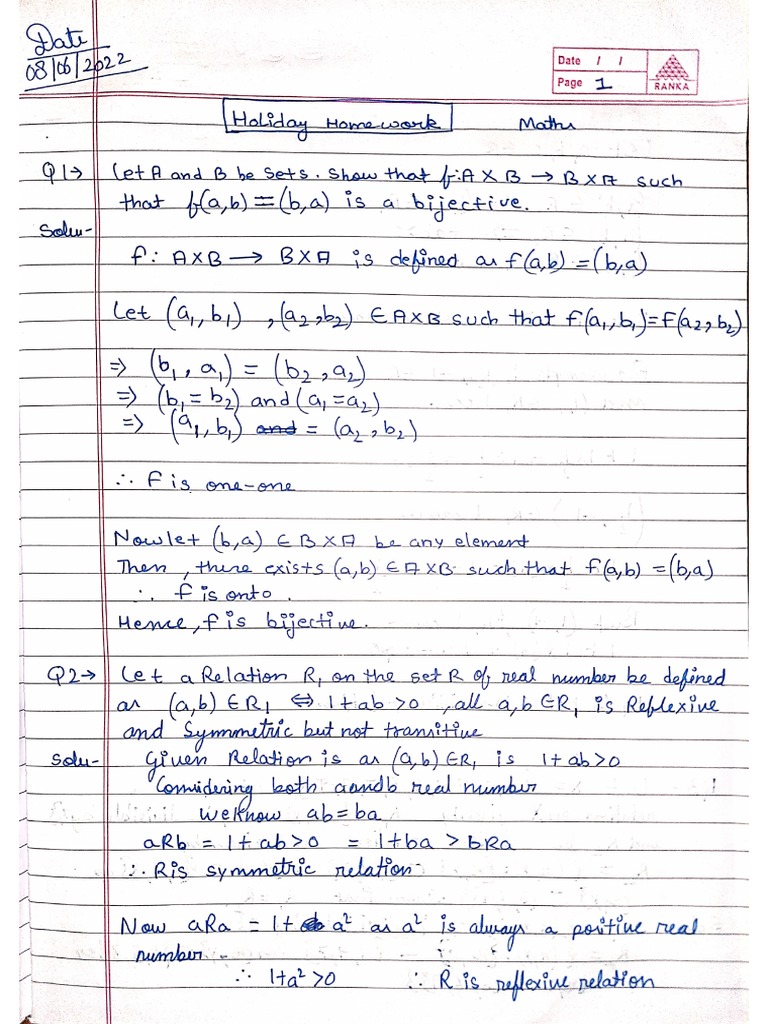 Date
08/06/2022
Date / /
Page 1
RANKA
Holiday Homework Maths
Q1→ Let A and B be sets. Show that f:A×B → B×A such
that f(a,b) = (b,a) is a bijective.
Solu-
f: A×B → B×A is defined as f(a,b) = (b,a)
Let (a₁,b₁) , (a₂,b₂) ∈ A×B such that f(a₁,b₁)=f(a₂,b₂)
⇒ (b₁, a₁) = (b₂, a₂)
⇒ (b₁= b₂) and (a₁=a₂)
⇒ (a₁, b₁) and = (a₂, b₂)
∴ f is one-one
Now let (b,a) ∈ B×A be any element
Then, there exists (a,b) ∈ A×B such that f(a,b) = (b,a)
∴ f is onto.
Hence, f is bijective.
Q2→ Let a Relation R₁ on the set R of real number be defined
as (a,b) ∈R₁ ⇔ 1+ab >0 , all a,b ∈R₁ is Reflexive
and Symmetric but not transitive
Solu- Given Relation is as (a,b) ∈R₁ is 1+ab>0
Considering both a and b real number
We Know ab=ba
aRb = 1+ab>0 = 1+ba > bRa
∴ R is symmetric relation
Now aRa = 1+ a² as a² is always a positive real
number
∴ 1+a²>0 ∴ R is reflexive relation